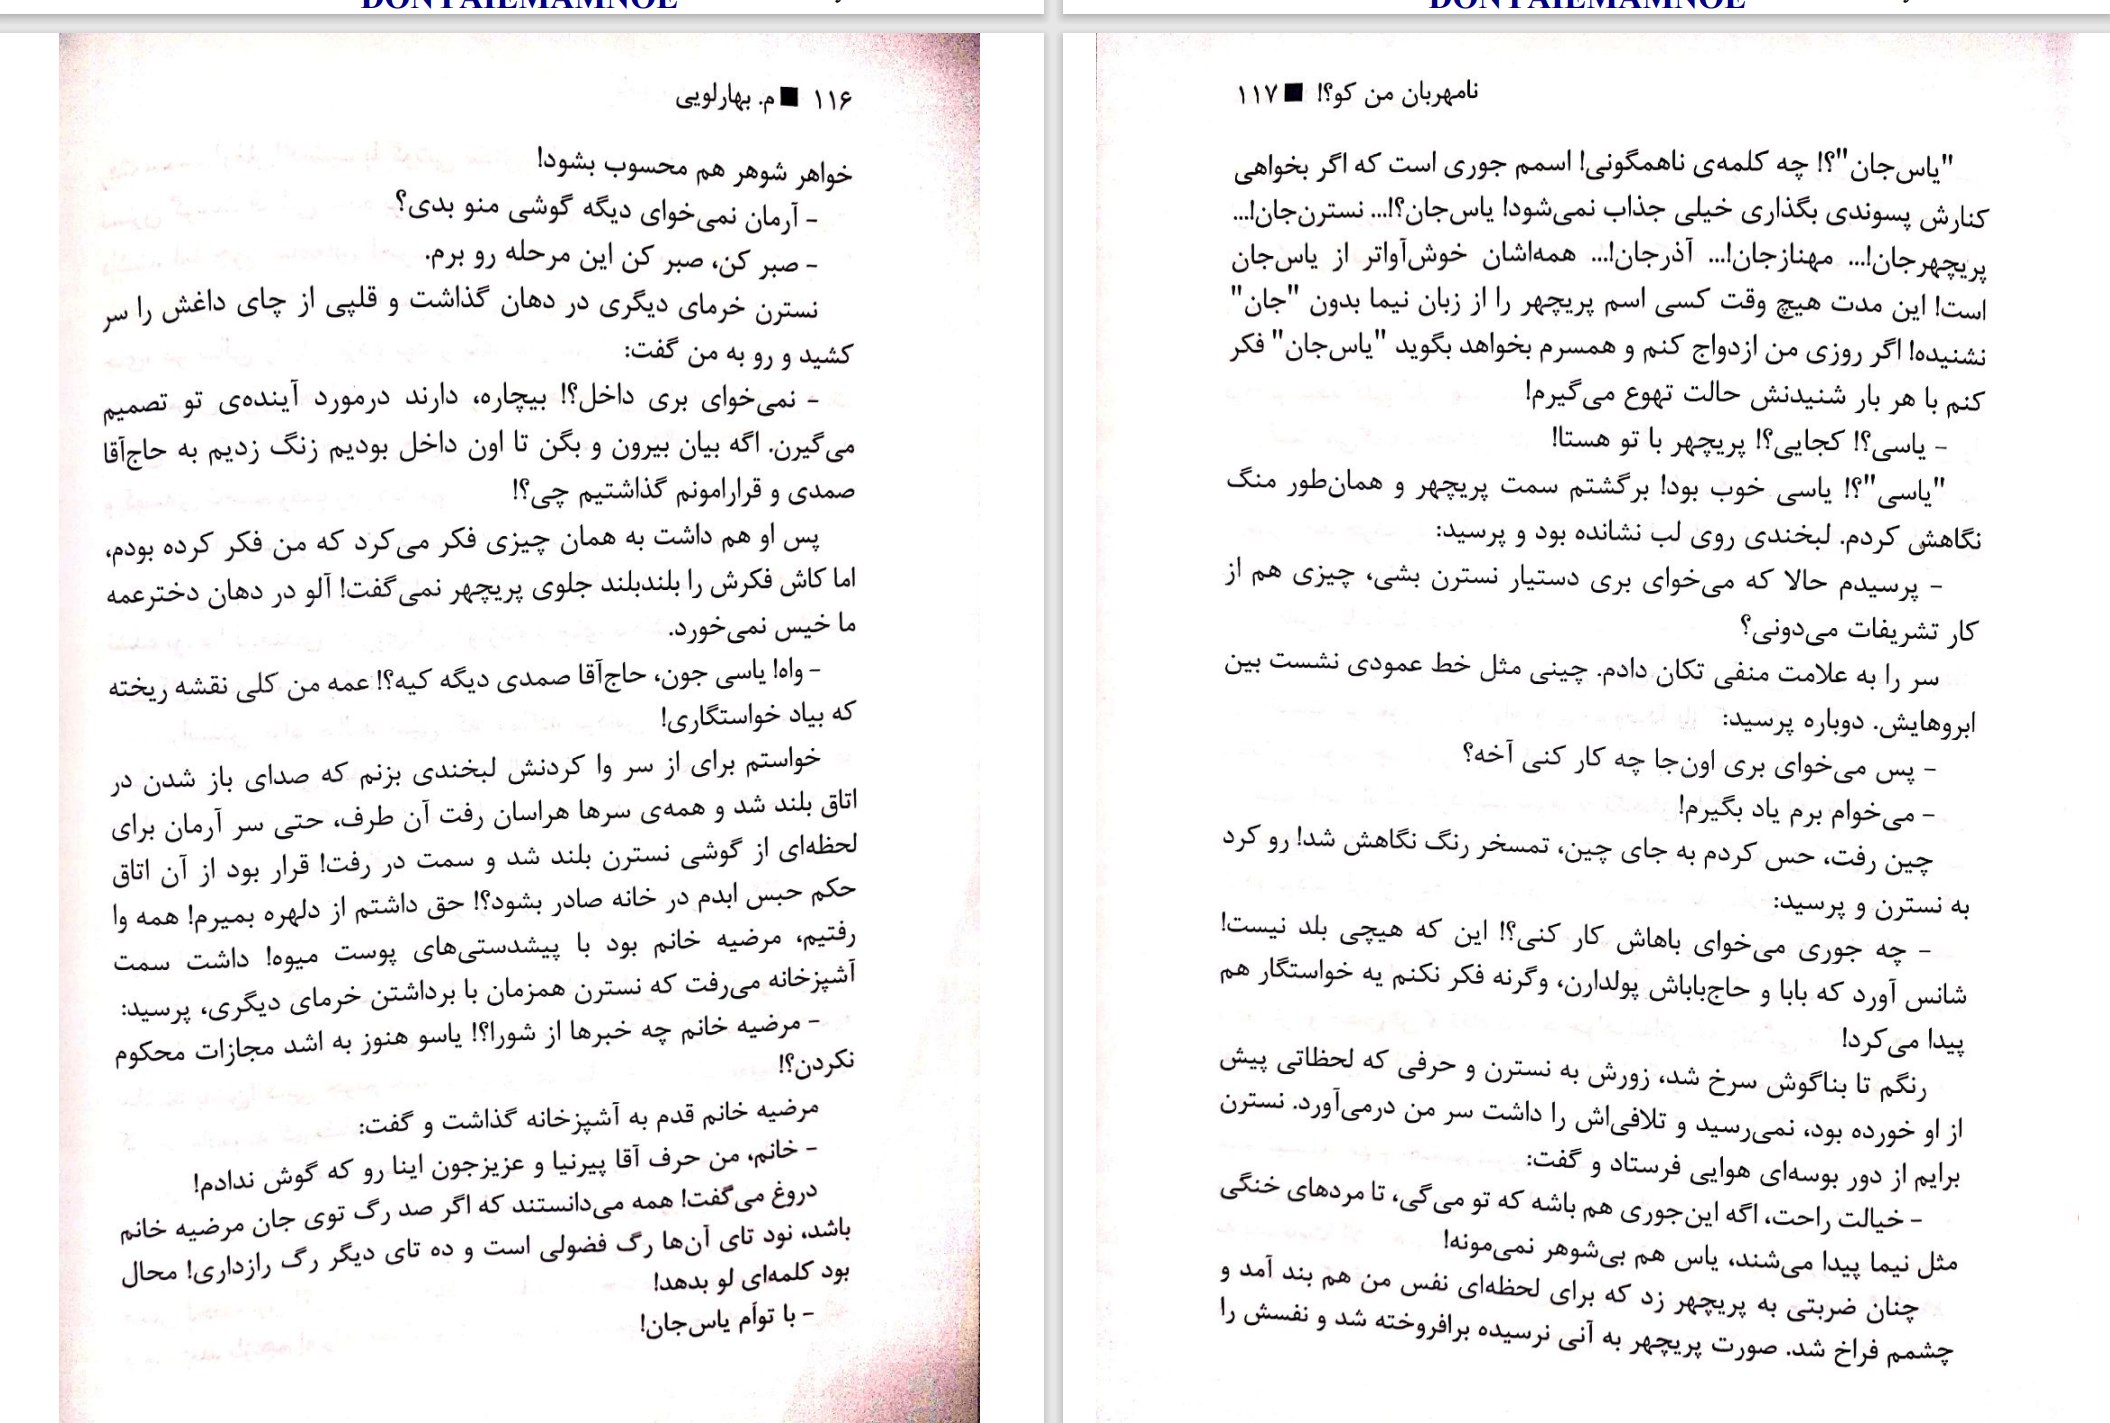 DONYAIEMAMNOE
DONYAIEMAMNOE
۱۱۶ ■ م. بهارلویی
خواهر شوهر هم محسوب بشود!
- آرمان نمی‌خوای دیگه گوشی منو بدی؟
- صبر کن، صبر کن این مرحله رو برم.
نسترن خرمای دیگری در دهان گذاشت و قلپی از چای داغش را سر
کشید و رو به من گفت:
- نمی‌خوای بری داخل؟! بیچاره، دارند درمورد آینده‌ی تو تصمیم
می‌گیرن. اگه بیان بیرون و بگن تا اون داخل بودیم زنگ زدیم به حاج‌آقا
صمدی و قرارامونم گذاشتیم چی؟!
پس او هم داشت به همان چیزی فکر می‌کرد که من فکر کرده بودم،
اما کاش فکرش را بلندبلند جلوی پریچهر نمی‌گفت! آلو در دهان دخترعمه
ما خیس نمی‌خورد.
- واه! یاسی جون، حاج‌آقا صمدی دیگه کیه؟! عمه من کلی نقشه ریخته
که بیاد خواستگاری!
خواستم برای از سر وا کردنش لبخندی بزنم که صدای باز شدن در
اتاق بلند شد و همه‌ی سرها هراسان رفت آن طرف، حتی سر آرمان برای
لحظه‌ای از گوشی نسترن بلند شد و سمت در رفت! قرار بود از آن اتاق
حکم حبس ابدم در خانه صادر بشود؟! حق داشتم از دلهره بمیرم! همه وا
رفتیم، مرضیه خانم بود با پیشدستی‌های پوست میوه! داشت سمت
آشپزخانه می‌رفت که نسترن همزمان با برداشتن خرمای دیگری، پرسید:
- مرضیه خانم چه خبرها از شورا؟! یاسو هنوز به اشد مجازات محکوم
نکردن؟!
مرضیه خانم قدم به آشپزخانه گذاشت و گفت:
- خانم، من حرف آقا پیرنیا و عزیزجون اینا رو که گوش ندادم!
دروغ می‌گفت! همه می‌دانستند که اگر صد رگ توی جان مرضیه خانم
باشد، نود تای آن‌ها رگ فضولی است و ده تای دیگر رگ رازداری! محال
بود کلمه‌ای لو بدهد!
- با توأم یاس‌جان!
نامهربان من کو؟! ■ ۱۱۷
"یاس‌جان"؟! چه کلمه‌ی ناهمگونی! اسمم جوری است که اگر بخواهی
کنارش پسوندی بگذاری خیلی جذاب نمی‌شود! یاس‌جان؟!... نسترن‌جان!...
پریچهرجان!... مهنازجان!... آذرجان!... همه‌اشان خوش‌آواتر از یاس‌جان
است! این مدت هیچ وقت کسی اسم پریچهر را از زبان نیما بدون "جان"
نشنیده! اگر روزی من ازدواج کنم و همسرم بخواهد بگوید "یاس‌جان" فکر
کنم با هر بار شنیدنش حالت تهوع می‌گیرم!
- یاسی؟! کجایی؟! پریچهر با تو هستا!
"یاسی"؟! یاسی خوب بود! برگشتم سمت پریچهر و همان‌طور منگ
نگاهش کردم. لبخندی روی لب نشانده بود و پرسید:
- پرسیدم حالا که می‌خوای بری دستیار نسترن بشی، چیزی هم از
کار تشریفات می‌دونی؟
سر را به علامت منفی تکان دادم. چینی مثل خط عمودی نشست بین
ابروهایش. دوباره پرسید:
- پس می‌خوای بری اون‌جا چه کار کنی آخه؟
- می‌خوام برم یاد بگیرم!
چین رفت، حس کردم به جای چین، تمسخر رنگ نگاهش شد! رو کرد
به نسترن و پرسید:
- چه جوری می‌خوای باهاش کار کنی؟! این که هیچی بلد نیست!
شانس آورد که بابا و حاج‌باباش پولدارن، وگرنه فکر نکنم یه خواستگار هم
پیدا می‌کرد!
رنگم تا بناگوش سرخ شد، زورش به نسترن و حرفی که لحظاتی پیش
از او خورده بود، نمی‌رسید و تلافی‌اش را داشت سر من درمی‌آورد. نسترن
برایم از دور بوسه‌ای هوایی فرستاد و گفت:
- خیالت راحت، اگه این‌جوری هم باشه که تو می‌گی، تا مردهای خنگی
مثل نیما پیدا می‌شند، یاس هم بی‌شوهر نمی‌مونه!
چنان ضربتی به پریچهر زد که برای لحظه‌ای نفس من هم بند آمد و
چشمم فراخ شد. صورت پریچهر به آنی نرسیده برافروخته شد و نفسش را